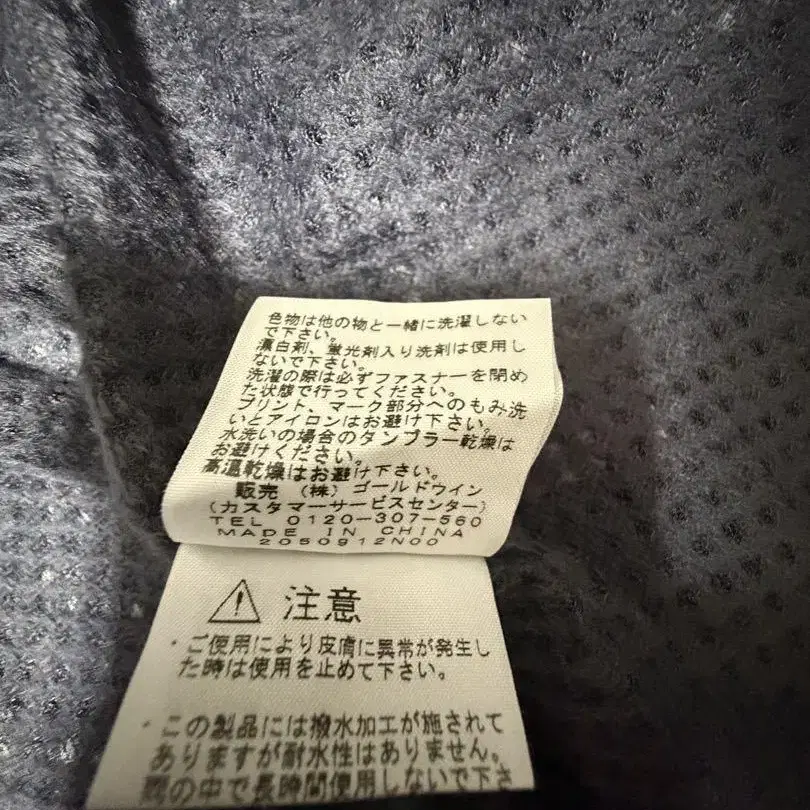 色物は他の物と一緒に洗濯しない
で下さい。
漂白剤、蛍光剤入り洗剤は使用し
ないで下さい。
洗濯の際は必ずファスナーを閉め
た状態で行ってください。
プリント、マーク部分へのもみ洗
いとアイロンはお避け下さい。
水洗いの場合のタンブラー乾燥は
お避けください。
高温乾燥はお避け下さい。
販売 (株) ゴールドウイン
(カスタマーサービスセンター)
TEL 0120-307-560
MADE IN CHINA
2050912N00
注意
・ご使用により皮膚に異常が発生し
た時は使用を止めて下さい。
・この製品には撥水加工が施されて
ありますが耐水性はありません。
雨の中で長時間使用しないで下さ